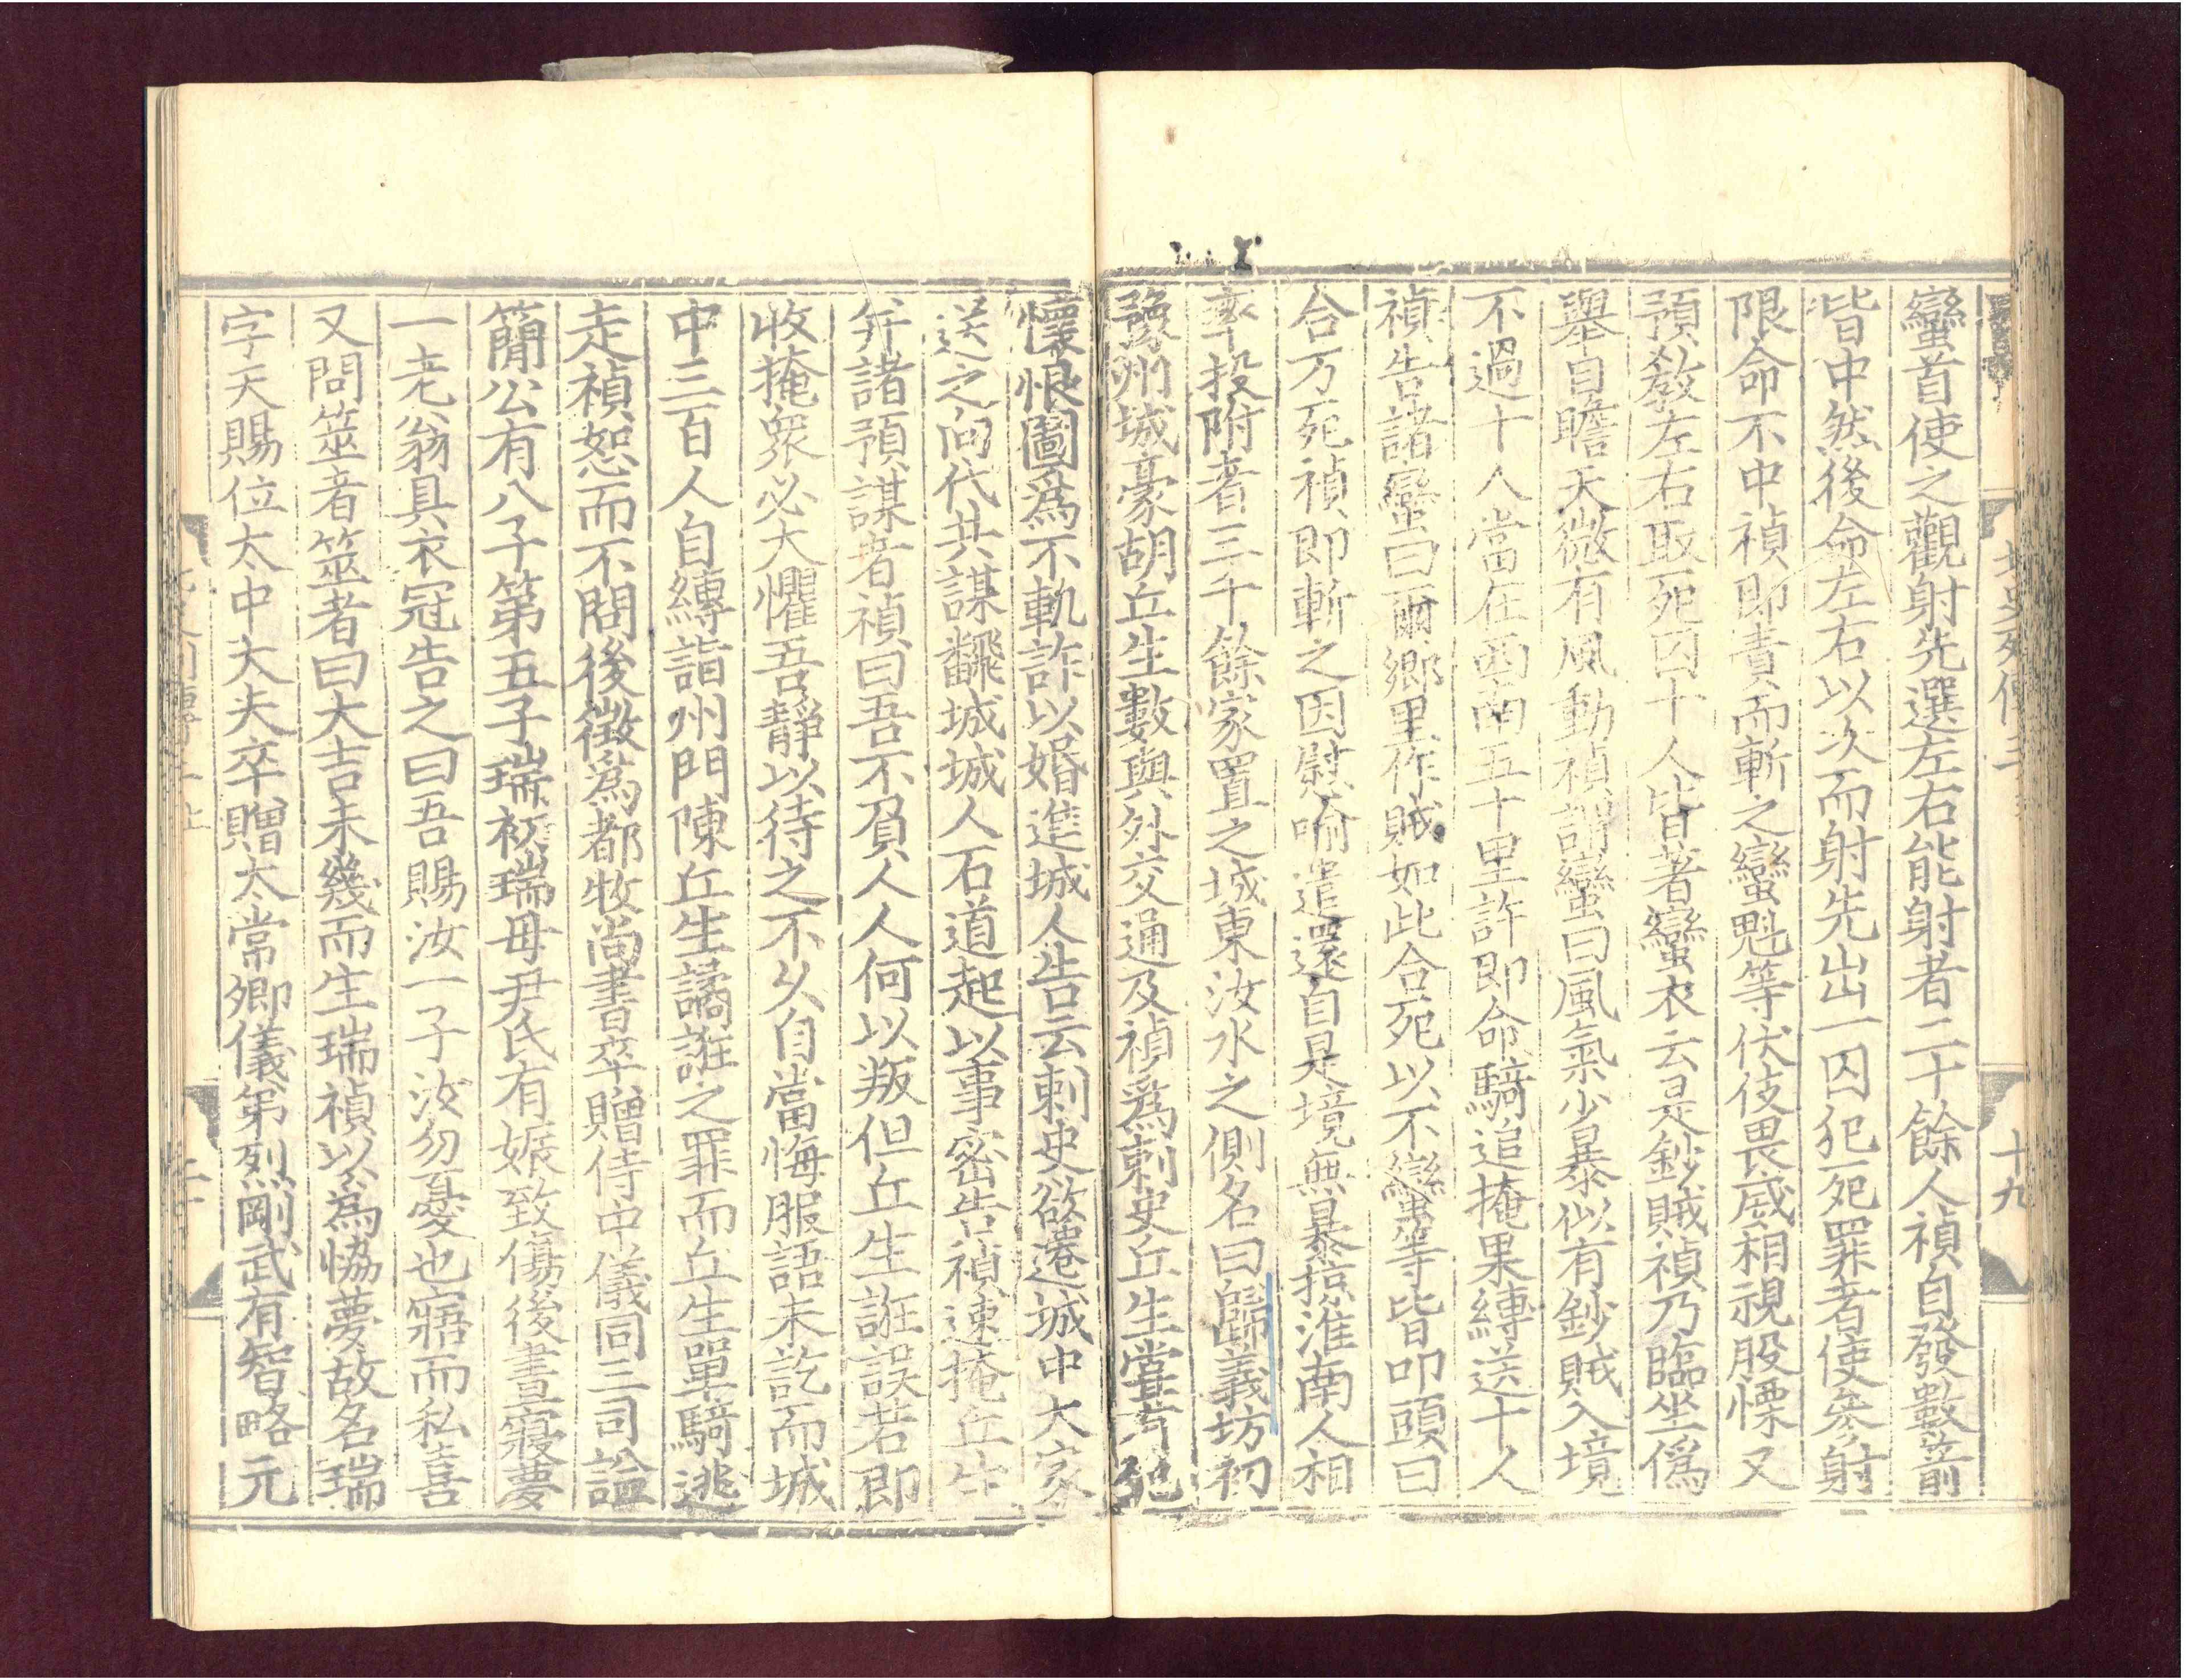 北史列傳三
十九
蠻首使之觀射先選左右能射者二十餘人禎自發數箭
皆中然後命左右以次而射先出一囚犯死罪者使參射
限命不中禎即責而斬之蠻魁等伏伎畏威相視股慄又
預教左右取死囚十人皆著蠻衣云是鈔賊禎乃臨坐僞
舉自瞻天微有風動禎謂蠻曰風氣少暴似有鈔賊入境
不過十人當在西南五十里許即命騎追掩果縛送十人
禎告諸蠻曰爾鄉里作賊如此合死以不蠻等皆叩頭曰
合万死禎即斬之因慰喻遣還自是境無暴掠淮南人相
率投附者三千餘家置之城東汝水之側名曰歸義坊初
豫州城豪胡丘生數與外交通及禎爲刺史丘生嘗有
懷恨圖爲不軌詐以婚進城人告云刺史欲遷城中大家
送之向代共謀飜城城人石道起以事密告禎速掩丘生
并諸預謀者禎曰吾不負人人何以叛但丘生誑誤若即
收掩衆必大懼吾靜以待之不久自當悔服語未訖而城
中三百人自縛詣州門陳丘生譎誑之罪而丘生單騎逃
走禎恕而不問後徵爲都牧尚書卒贈侍中儀同三司謚
簡公有八子第五子瑞初瑞母尹氏有娠致傷後晝寢夢
一老翁具衣冠告之曰吾賜汝一子汝勿憂也寤而私喜
又問筮者筮者曰大吉未幾而生瑞禎以爲協夢故名瑞
字天賜位太中大夫卒贈太常卿儀弟烈剛武有智略元